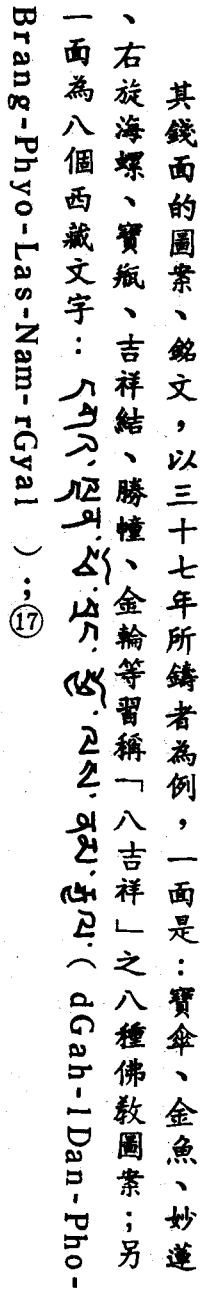 其錢面的圖案、銘文,以三十七年所鑄者為例,一面是:寶傘、金魚、妙蓮
、右旋海螺、寶瓶、吉祥結、勝幢、金輪等習稱「八吉祥」之八種佛教圖案;另
一面為八個西藏文字:(dGah-lDan-Pho-
Brang-Phyo-Las-Nam-rGyal);⑰